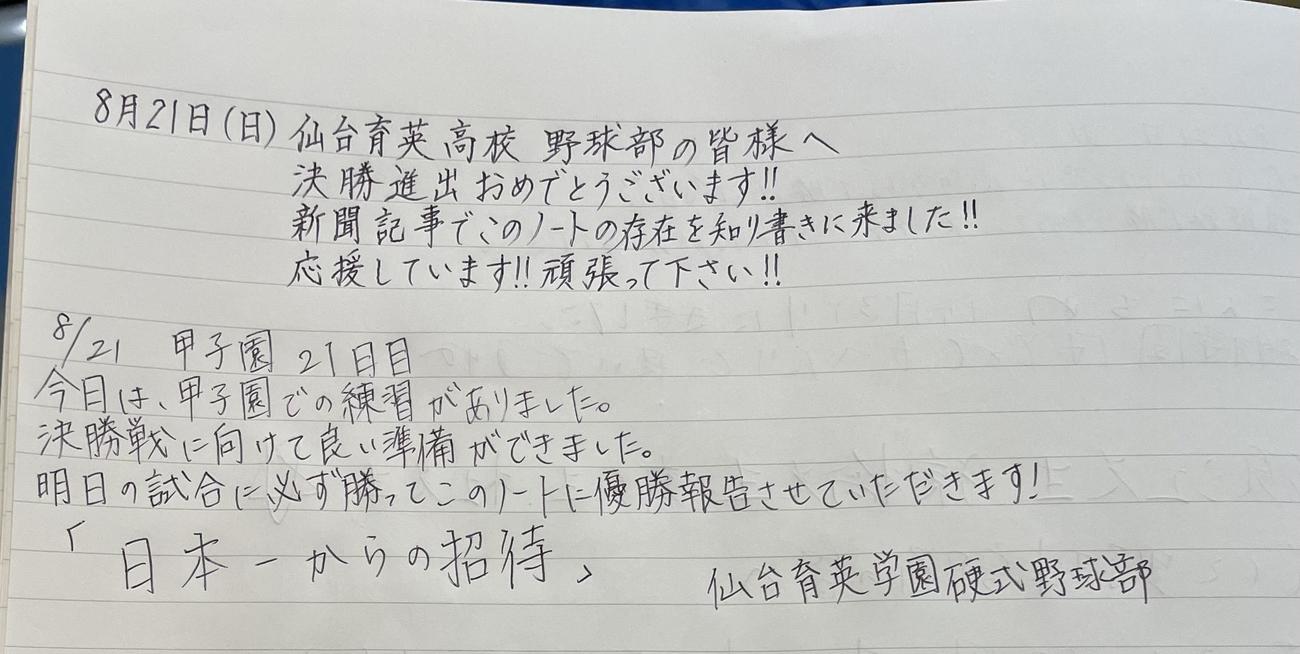 8月21日(日) 仙台育英高校 野球部の皆様へ
決勝進出おめでとうございます!!
新聞記事でこのノートの存在を知り書きに来ました!!
応援しています!! 頑張って下さい!!
8/21 甲子園 21日目
今日は、甲子園での練習がありました。
決勝戦に向けて良い準備ができました。
明日の試合に必ず勝ってこのノートに優勝報告させていただきます!
「日本一からの招待」
仙台育英学園硬式野球部